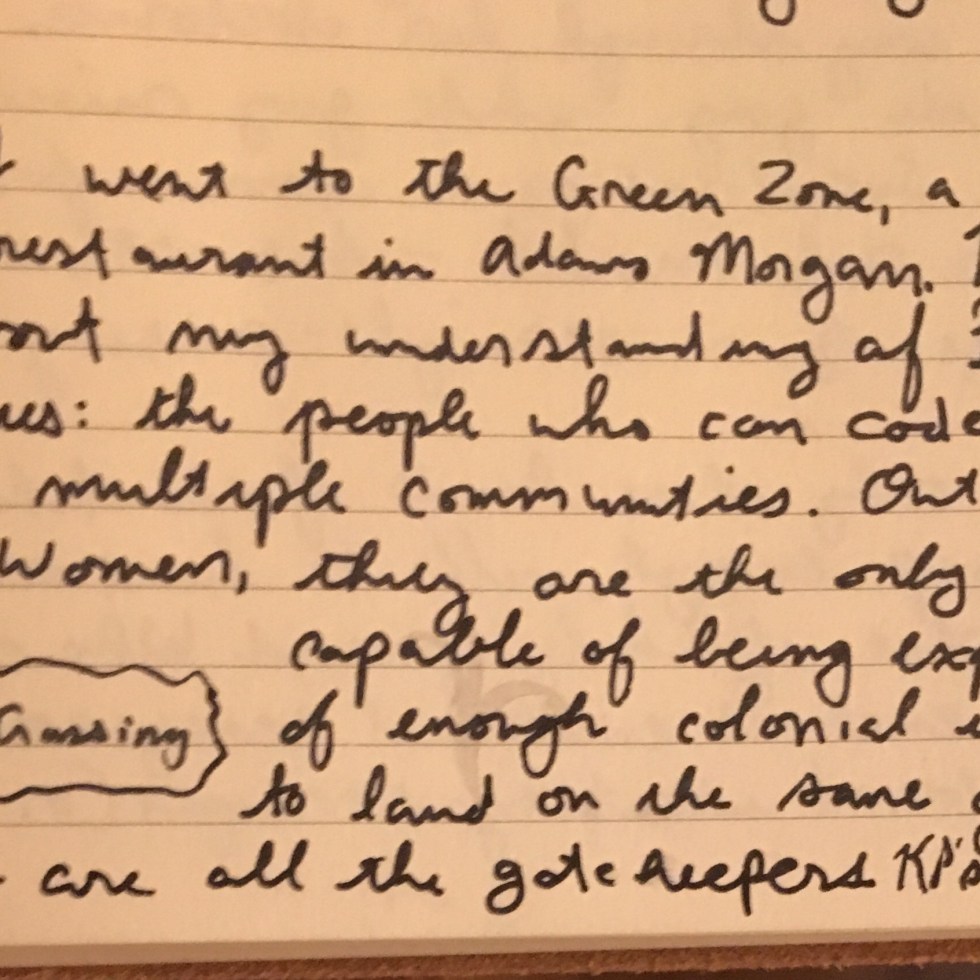 went to the Green Zone, a
restaurant in Adams Morgan.
my understanding of
the people who can code
multiple communities. Out
Women, they are the only
capable of being exp
Gassing of enough colonial
to land on the same
are all the gatekeepers KP's